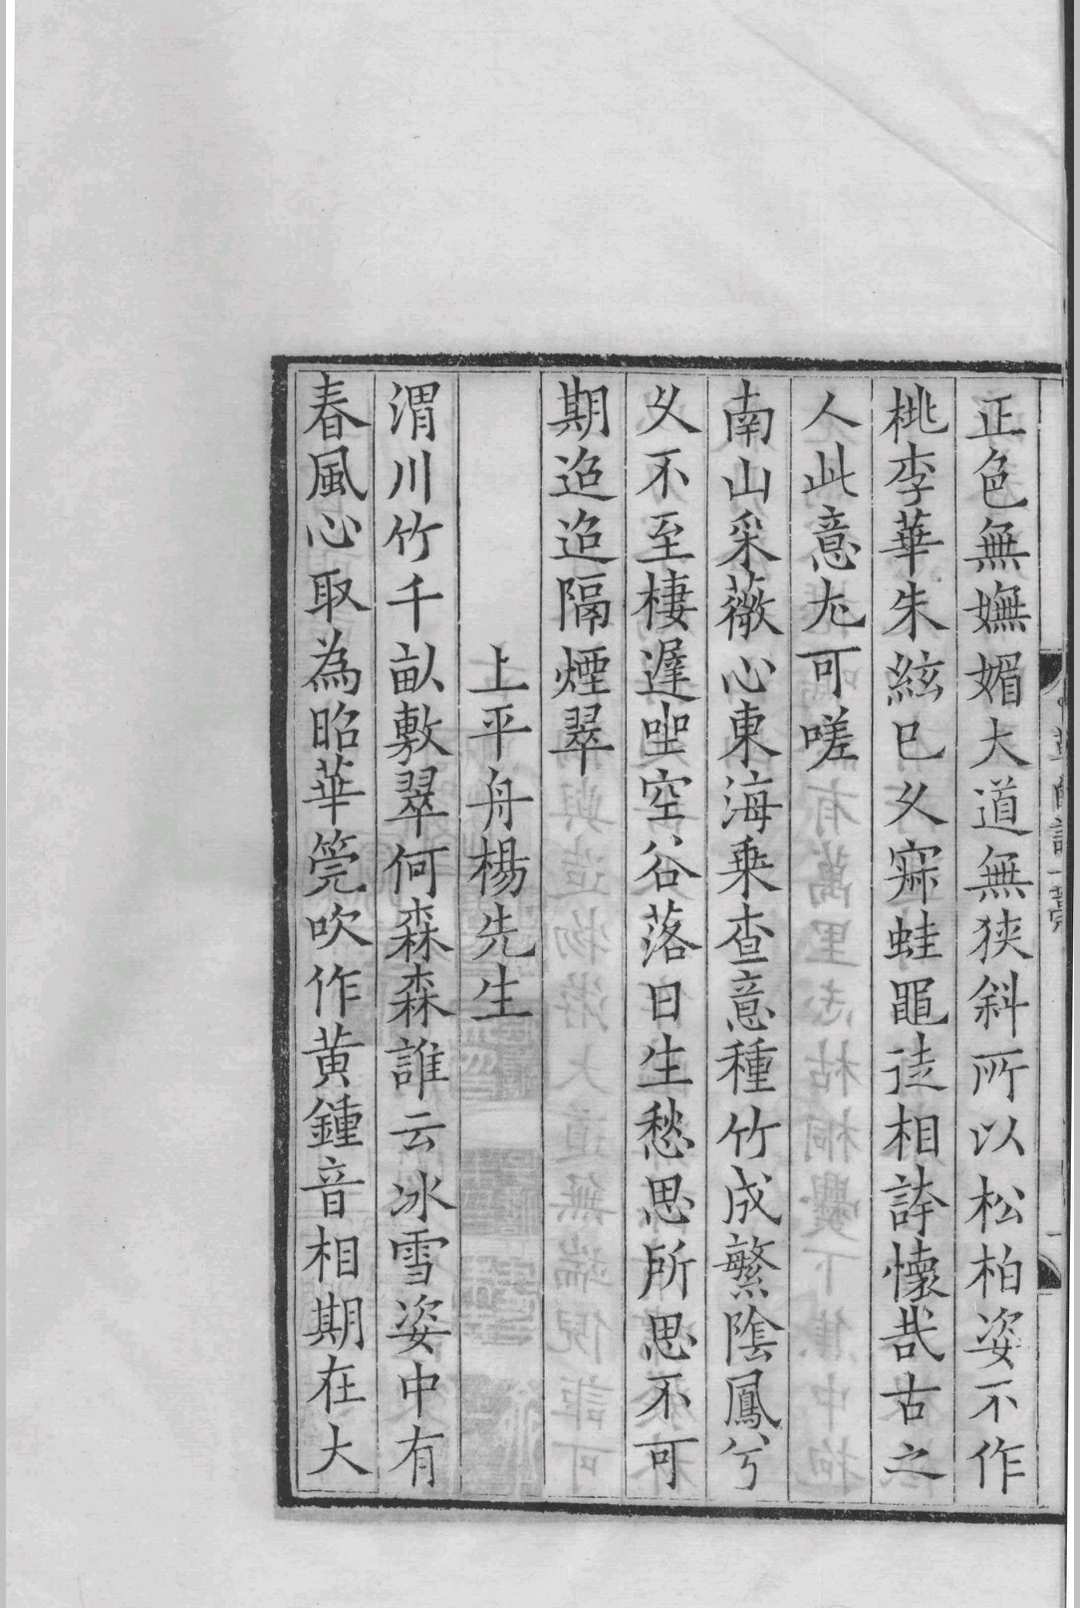 正色無嫵媚大道無狹斜所以松柏姿不作
桃李華朱絃已久寐蛙黽徒相誇懷哉古之
人此意尤可嗟
南山采薇心東海乗查意種竹成繁陰鳳兮
久不至棲遲坐空谷落日生愁思所思不可
期迢迢隔煙翠
上平舟楊先生
渭川竹千畝敷翠何森森誰云冰雪姿中有
春風心取為昭華筦吹作黄鍾音相期在大